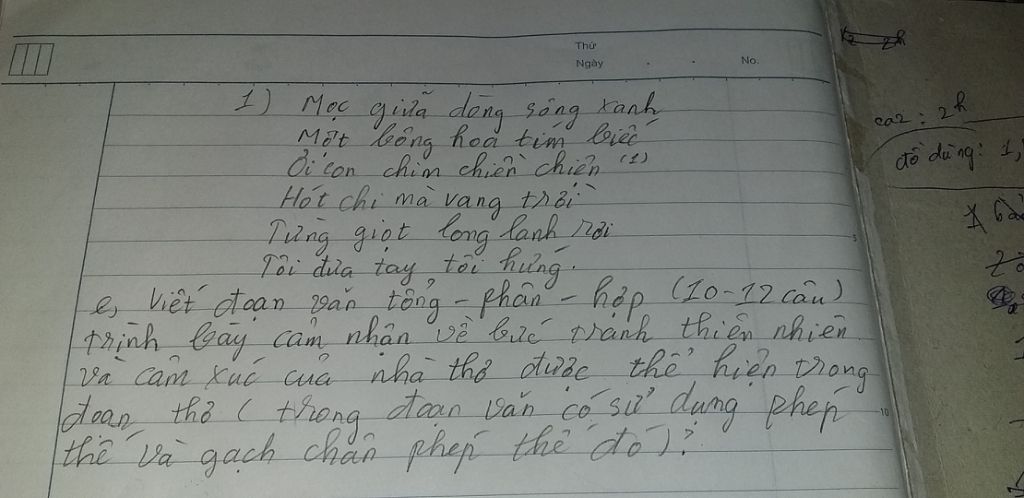 Thứ
Ngày . . No.
1) Mọc giữa dòng sông xanh
Một bông hoa tím biếc
Ơi con chim chiền chiện (1)
Hót chi mà vang trời
Từng giọt long lanh rơi
Tôi đưa tay tôi hứng.
e, Viết đoạn văn tổng - phân - hợp (10-12 câu)
trình bày cảm nhận về bức tranh thiên nhiên
và cảm xúc của nhà thơ được thể hiện trong
đoạn thơ ( trong đoạn văn có sử dụng phép
thế và gạch chân phép thế đó)?
ca2: 2h
đồ dùng: 1,
5
10